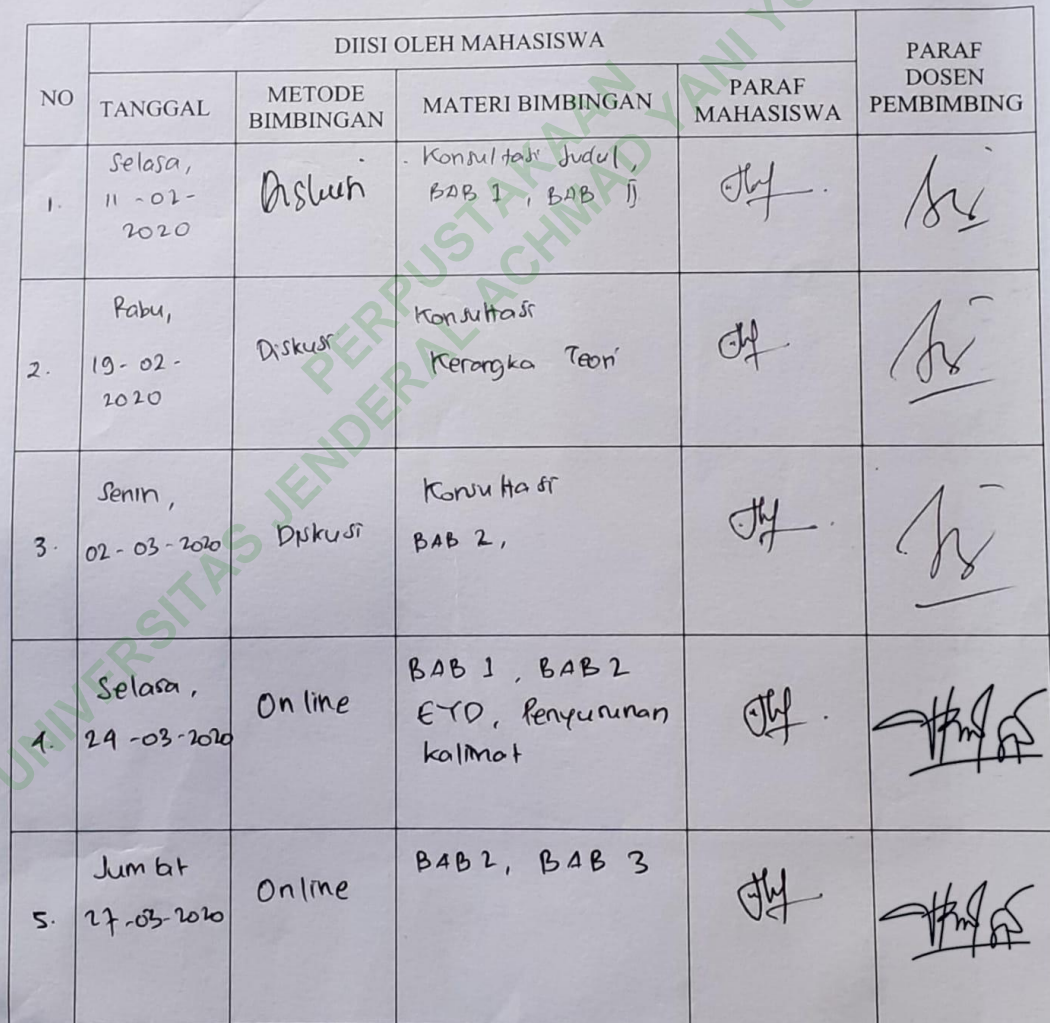 DIISI OLEH MAHASISWA
NO
TANGGAL
METODE
BIMBINGAN
MATERI BIMBINGAN
PARAF
MAHASISWA
PARAF
DOSEN
PEMBIMBING
1.
Selasa,
11-02-
2020
Konsultasi Judul,
BAB 1, BAB II
2.
Rabu,
19-02-
2020
Diskusi
Konsultasi
Kerangka Teori
3.
Senin,
02-03-2020
Diskusi
Konsultasi
BAB 2,
4.
Selasa,
24-03-2020
Online
BAB 1, BAB 2
EYD, Penyusunan
kalimat
5.
Jum'at
27-03-2020
Online
BAB 2, BAB 3
PERPUSTAKAAN
UNIVERSITAS JENDERAL ACHMAD YANI